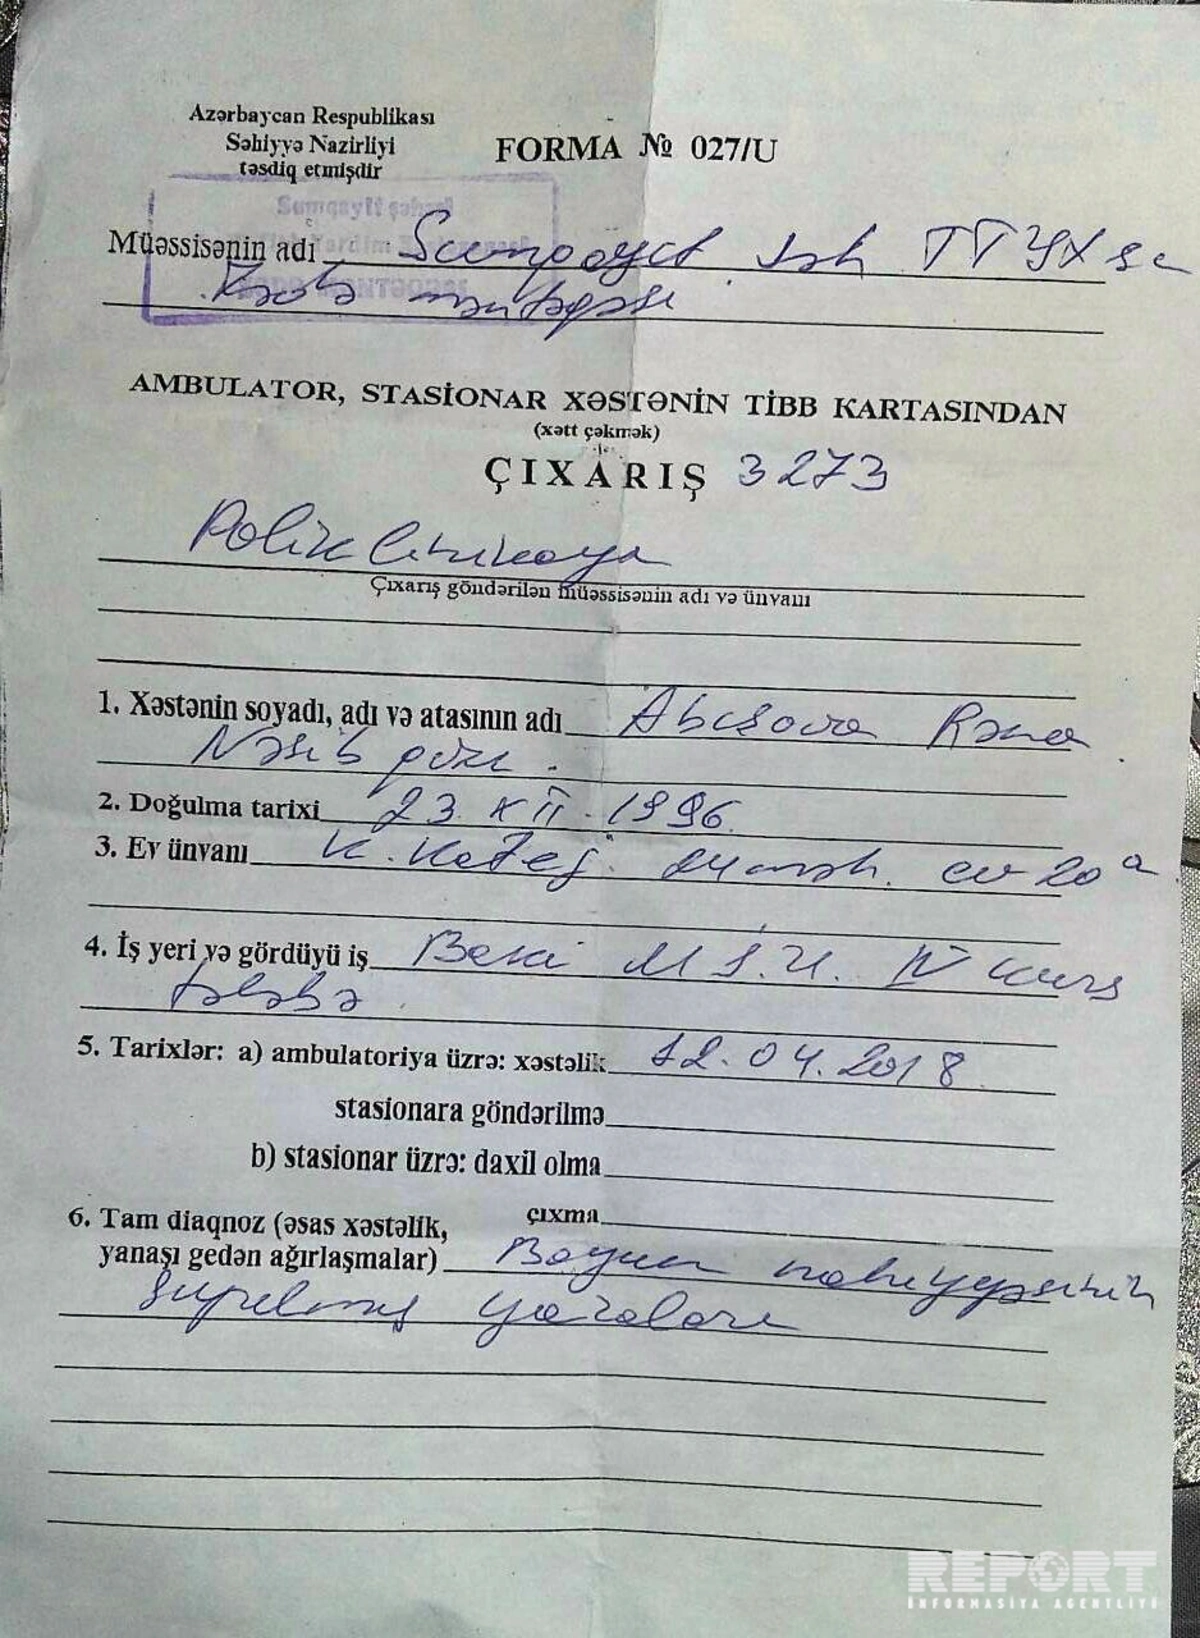 Azərbaycan Respublikası
Səhiyyə Nazirliyi
təsdiq etmişdir
FORMA № 027/U
Sumqayıt şəhəri
Müəssisənin adı Sumqayıt şəh TTYX
məntəqəsi
AMBULATOR, STASİONAR XƏSTƏNİN TİBB KARTASINDAN
(xətt çəkmək)
ÇIXARIŞ 3273
Poliklinikaya
Çıxarış göndərilən müəssisənin adı və ünvanı
1. Xəstənin soyadı, adı və atasının adı Abışova Rəna
Nəsib qızı.
2. Doğulma tarixi 23. XII. 1996.
3. Ev ünvanı məh. ev 20a
4. İş yeri və gördüyü iş Bakı M.S.U. IV kurs
tələbə
5. Tarixlər: a) ambulatoriya üzrə: xəstəlik 12.04.2018
stasionara göndərilmə
b) stasionar üzrə: daxil olma
çıxma
6. Tam diaqnoz (əsas xəstəlik,
yanaşı gedən ağırlaşmalar) Boyun nahiyyəsinin
yaraları
REPORT
İNFORMASİYA AGENTLİYİ